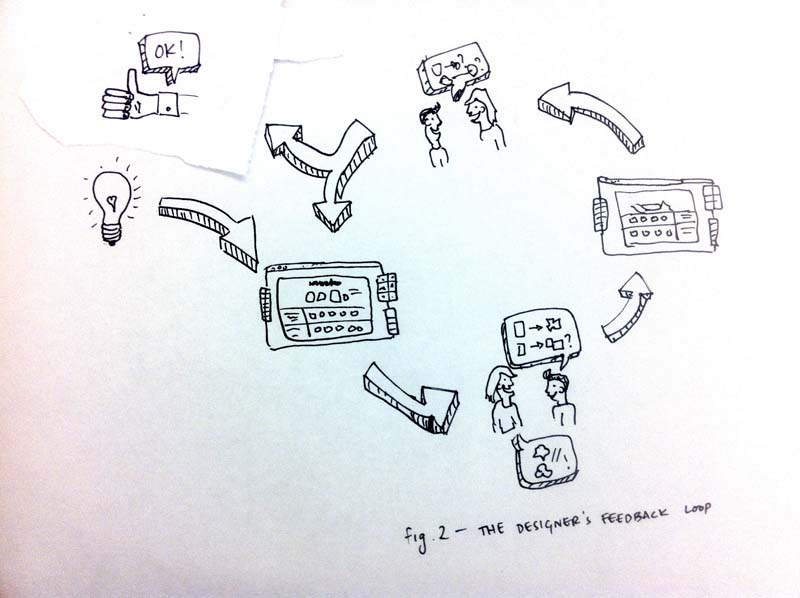 OK!
fig. 2 – THE DESIGNER'S FEEDBACK LOOP